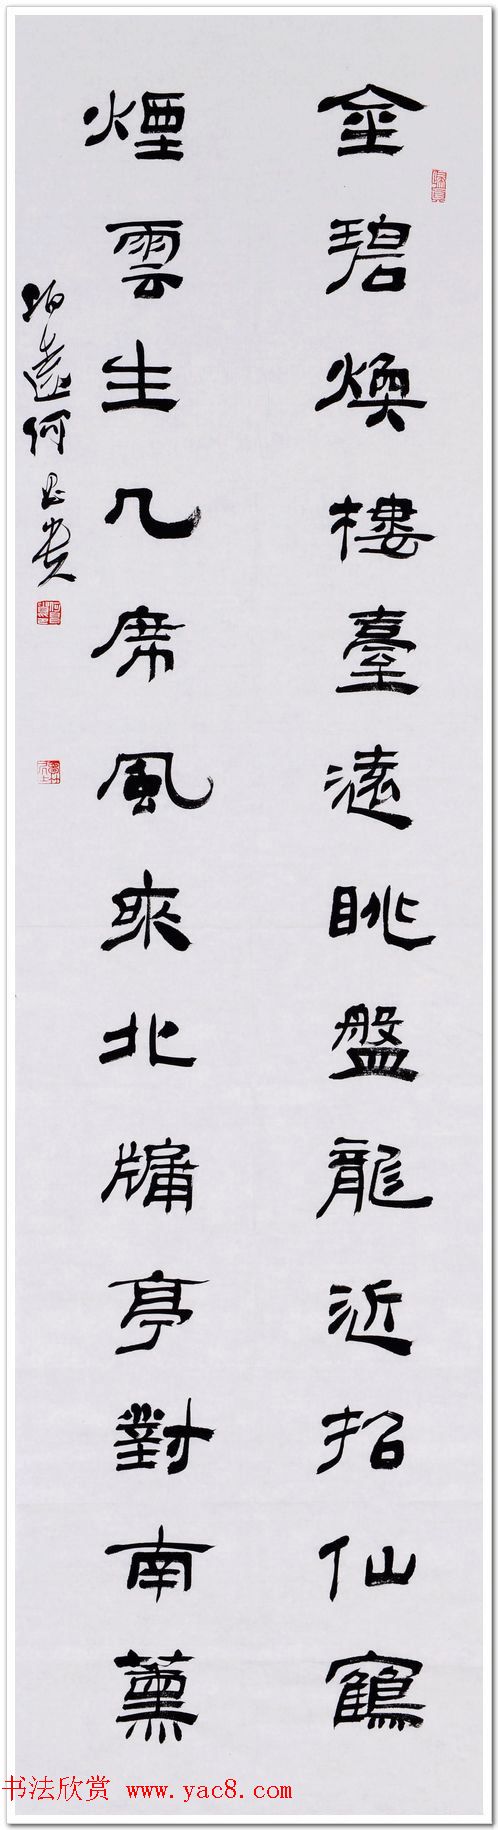 金碧煥樓臺遠眺盤龍近招仙鶴
煙雲生几席風來北牖亭對南薰
遠何昌貴
书法欣赏 www.yac8.com